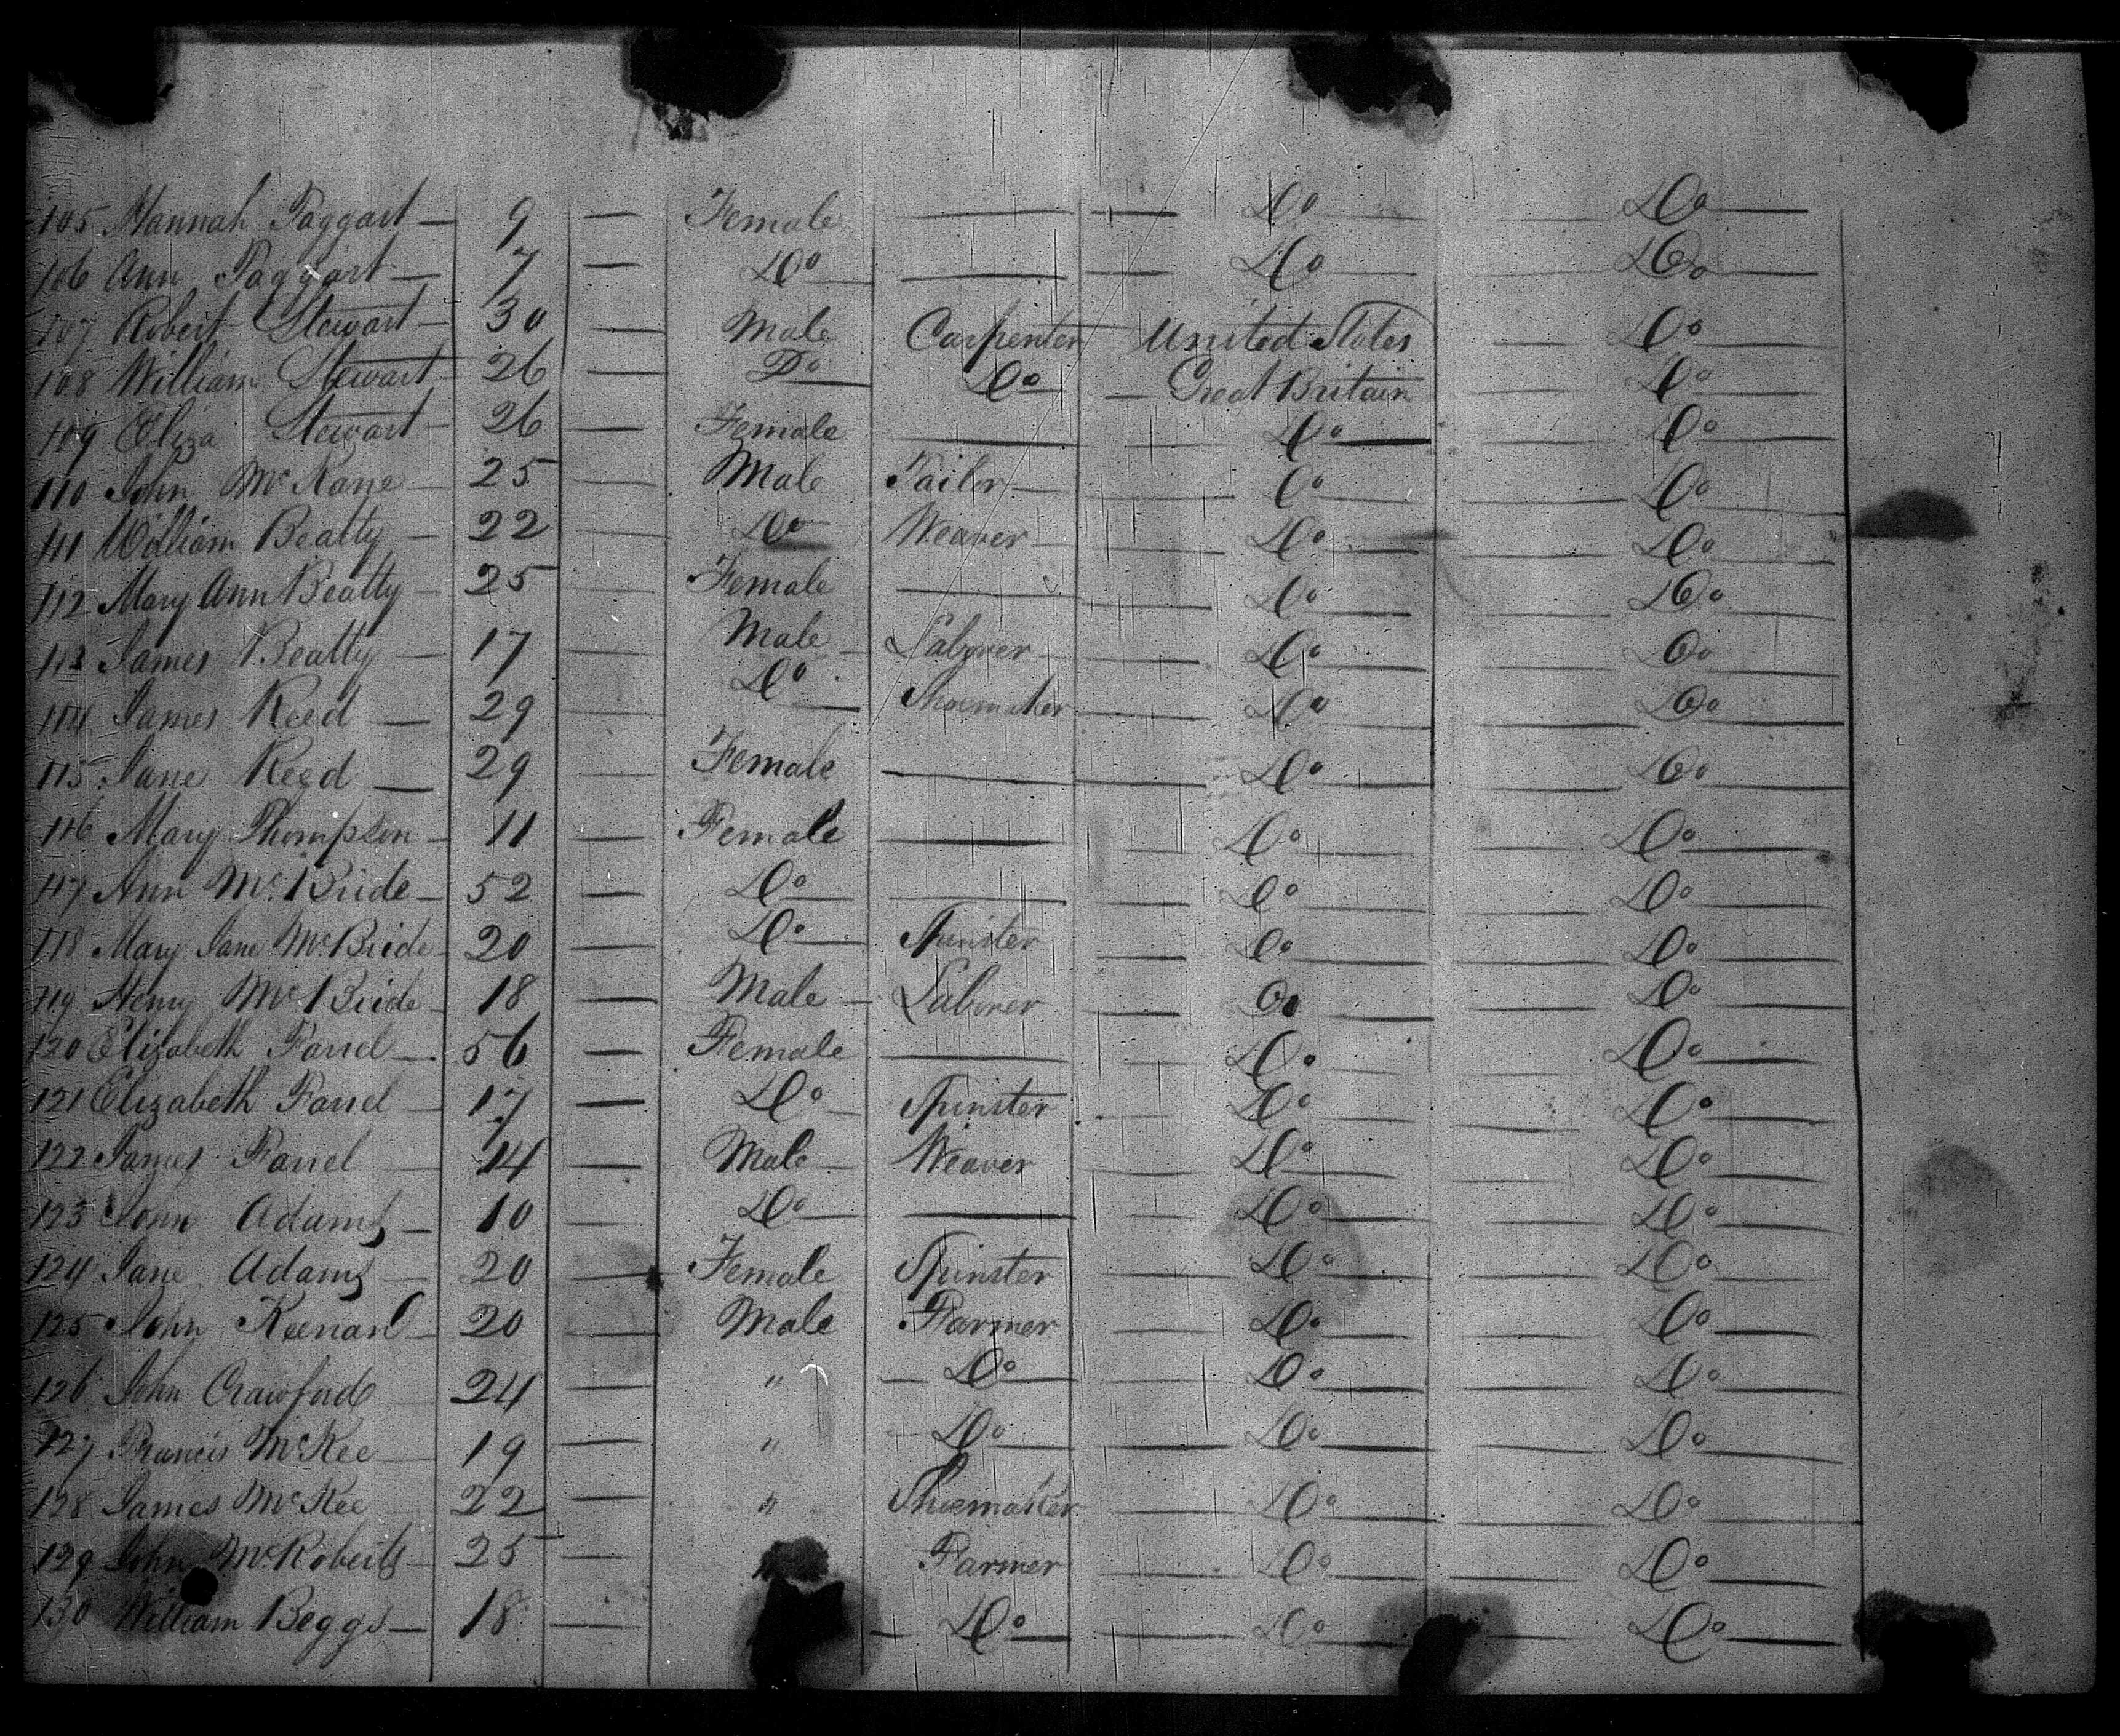 105 Hannah Taggart — 9 — Female — Do Do
106 Ann Taggart — 7 — Do — Do Do
107 Robert Stewart — 30 — Male Carpenter United States Do
108 William Stewart 26 — Do Do — Great Britain Do
109 Eliza Stewart 26 — Female — Do Do
110 John McKane — 25 — Male Tailor — Do Do
111 William Beatty — 22 — Do Weaver — Do Do
112 Mary Ann Beatty — 25 — Female — Do Do
113 James Beatty — 17 — Male — Laborer — Do Do
114 James Reed — 29 — Do Shoemaker — Do Do
115 Jane Reed — 29 — Female — Do Do
116 Mary Thompson — 11 — Female — Do Do
117 Ann McBride — 52 — Do — Do Do
118 Mary Jane McBride 20 — Do Spinster — Do Do
119 Henry McBride 18 — Male — Laborer — Do Do
120 Elizabeth Farrel — 56 — Female — Do Do
121 Elizabeth Farrel — 17 — Do Spinster — Do Do
122 James Farrel — 14 — Male Weaver — Do Do
123 John Adams — 10 — Do — Do Do
124 Jane Adams — 20 — Female Spinster — Do Do
125 John Keenan — 20 — Male Farmer — Do Do
126 John Crawford — 24 — " — Do — Do Do
127 Francis McKee — 19 — " Do — Do Do
128 James McKee 22 — " Shoemaker — Do Do
129 John McRoberts — 25 — Farmer — Do Do
130 William Beggs — 18 — Do — Do Do